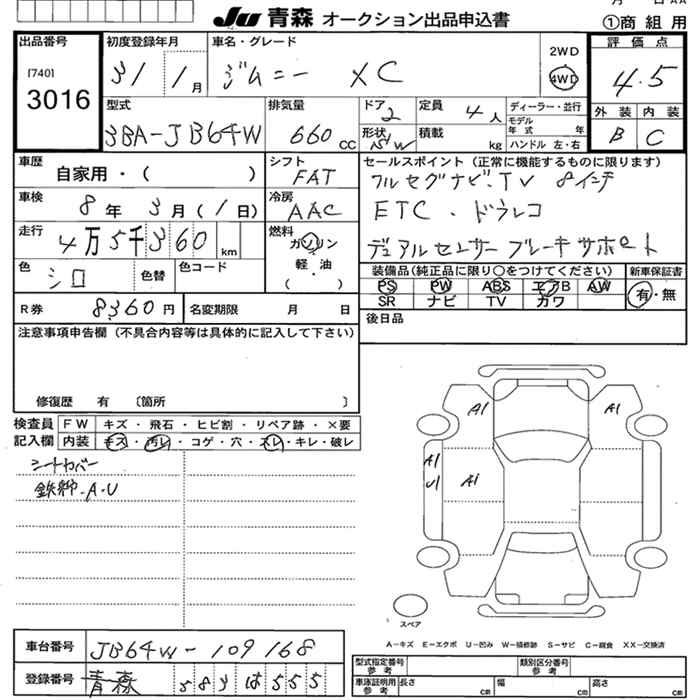 Ju 青森 オークション出品申込書
①商組用
出品番号
[740]
3016
初度登録年月
31/1月
車名・グレード
ジムニー XC
2WD
4WD
評価点
4.5
外装 内装
B C
型式
3BA-JB64W
排気量
660cc
ドア
2
定員
4人
形状
S/W
積載
kg
ディーラー・並行
モデル年式 年
ハンドル 左・右
車歴
自家用・( )
シフト
FAT
車検
8年3月(1日)
冷房
AAC
走行
4万5千360km
燃料
ガソリン
軽・油
( )
色
シロ
色替
色コード
R券
8360円
名変期限 月 日
セールスポイント(正常に機能するものに限ります)
フルセグナビ.TV 8インチ
ETC.ドラレコ
デュアルセンサーブレーキサポート
装備品(純正品に限り○をつけてください)
新車保証書
PS PW ABS エアB AW
SR ナビ TV カワ
有・無
後日品
注意事項申告欄(不具合内容等は具体的に記入して下さい)
修復歴 有 〔箇所 〕
検査員記入欄
FW キズ・飛石・ヒビ割・リペア跡・×要
内装 キズ・汚レ・コゲ・穴・スレ・キレ・破レ
シートカバー
A・U
A1
A1
A1
U1
A1
スペア
A-キズ E-エクボ U-凹み W-補修跡 S-サビ C-腐食 XX-交換済
車台番号
JB64W-109168
登録番号
青森 583 は 555
型式指定番号 参考
類別区分番号 参考
車庫証明用 参考
長さ cm
幅 cm
高さ cm